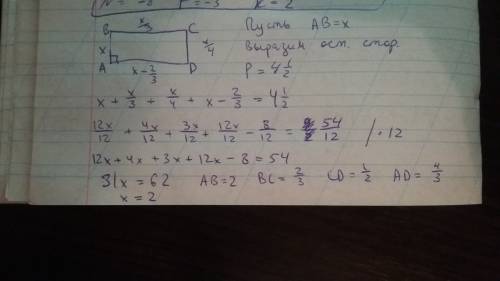 P = -3 K = 2
B x/3 C Пусть AB=x
x x/4 Выразим ост. стор.
A x - 2/3 D P = 4 1/2
x + x/3 + x/4 + x - 2/3 = 4 1/2
12x/12 + 4x/12 + 3x/12 + 12x/12 - 8/12 = 54/12 / · 12
12x + 4x + 3x + 12x - 8 = 54
31x = 62 AB=2 BC = 2/3 CD = 1/2 AD = 4/3
x = 2